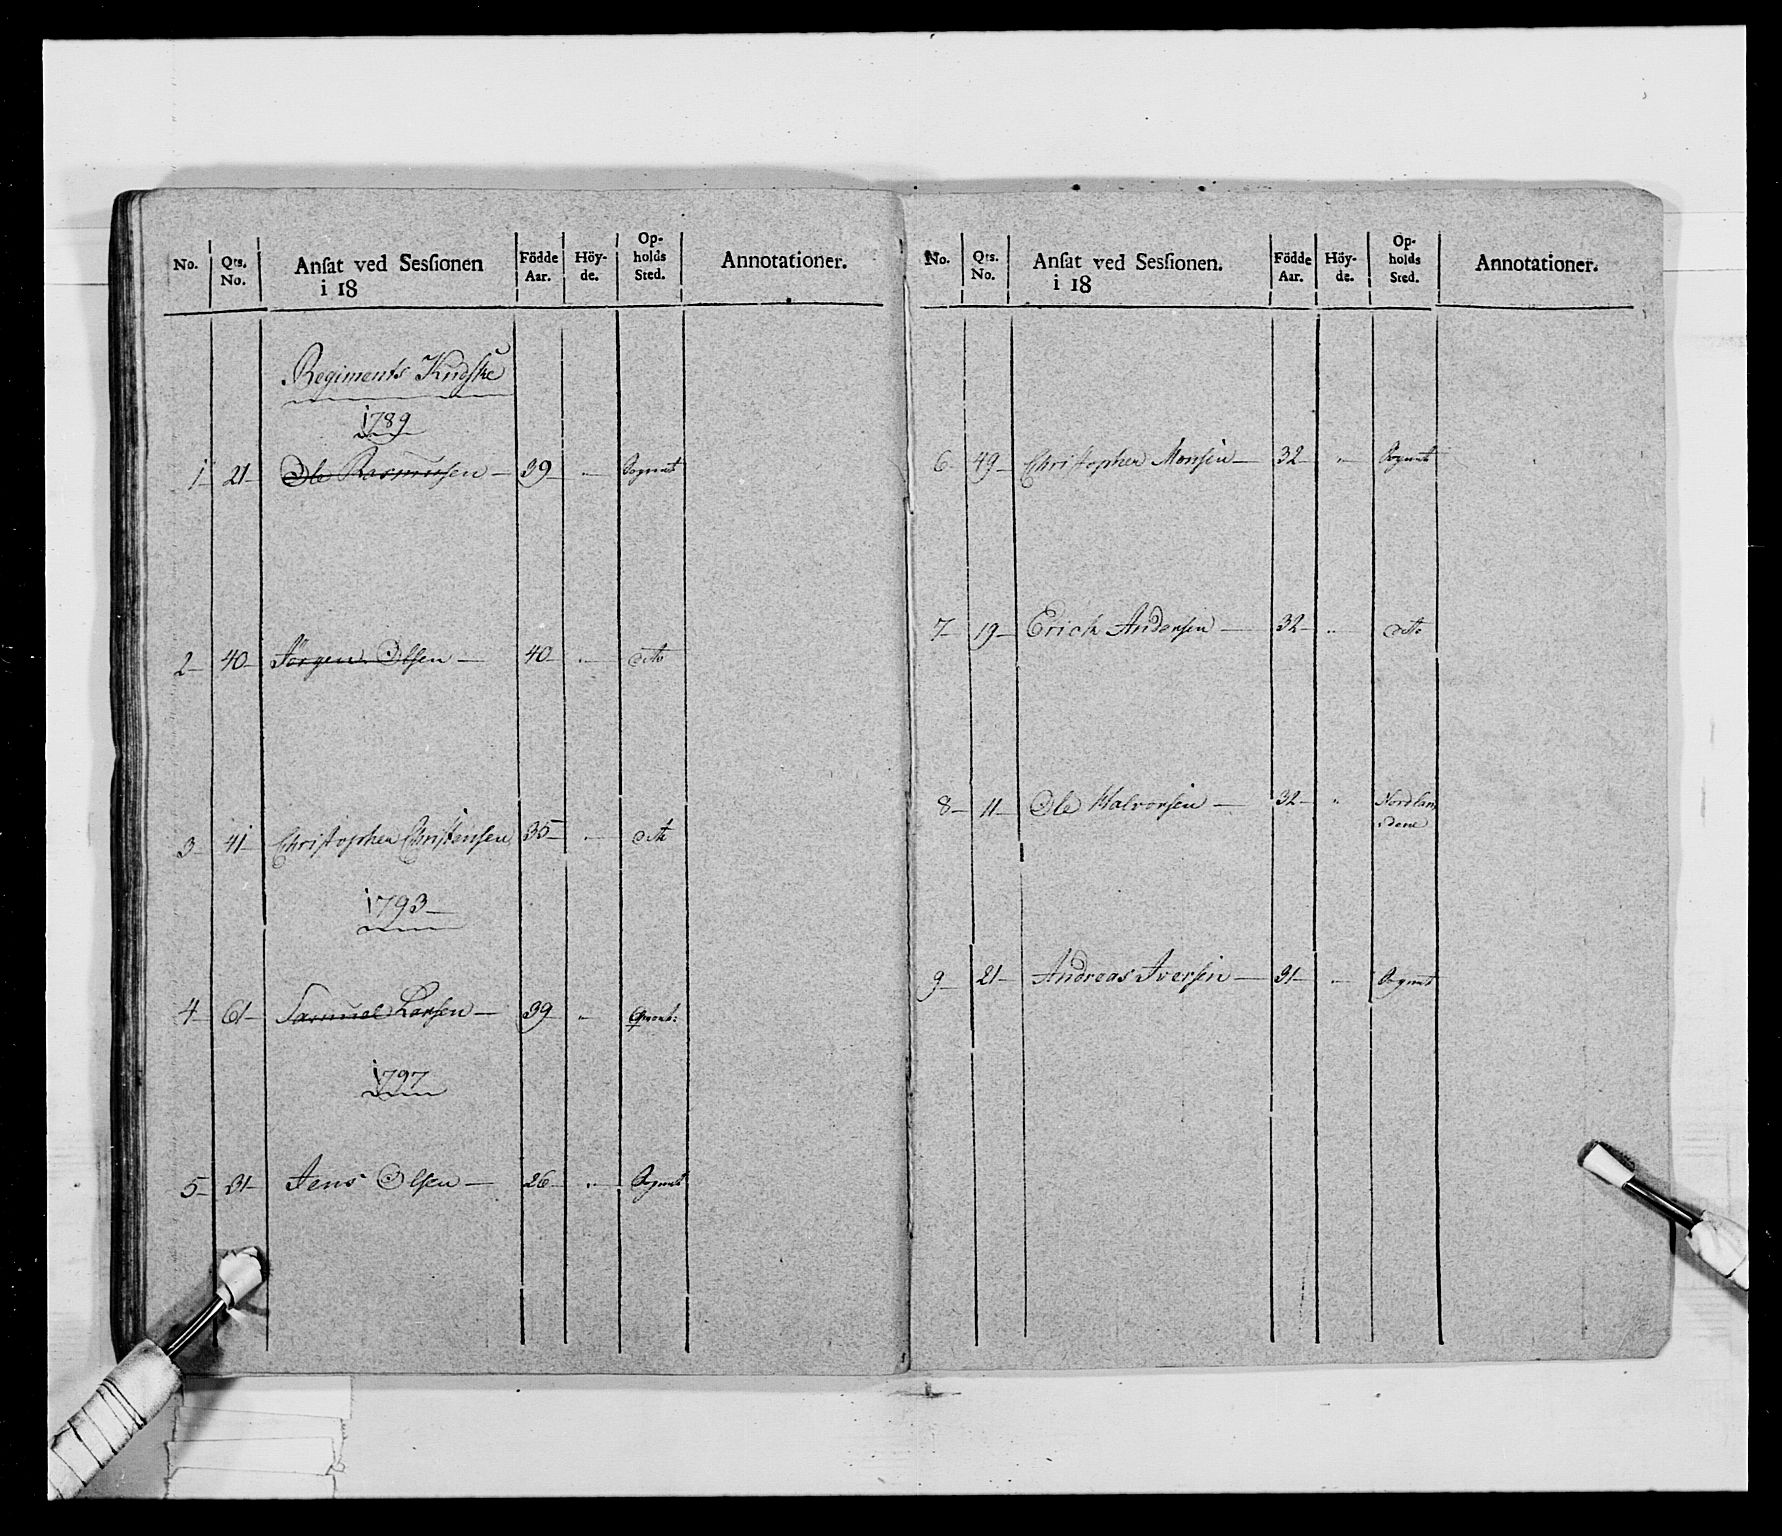 No. Qts. No. Ansat ved Sessionen i 18 Födde Aar. Höyde. Opholds Sted. Annotationer.
Regiments Kudske
1789
1 21 Ole Rasmussen 39 " Sognet
2 40 Jörgen Olsen 40 " ditto
3 41 Christopher Christensen 35 " ditto
1793
4 61 Samuel Larsen 39 "
1797
5 31 Jens Olsen 26 " Sognet
No. Qts. No. Ansat ved Sessionen. i 18 Födde Aar. Höyde. Opholds Sted. Annotationer.
6 49 Christopher Monsen 32 " Sognet
7 19 Erich Andersen 32 " ditto
8 11 Ole Halvorsen 32 " Nordlan
dene
9 21 Andreas Iversen 31 " Sognet